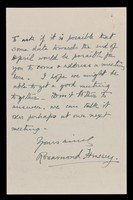 to ask if it is possible that
some date towards the end of
April would be possible for
you to come & address a meeting
here. I hope we might be
able to get a good meeting
together. Don't bother to
answer, we can talk it
over perhaps at our next
meeting.
Yours sincerely
Rosamond